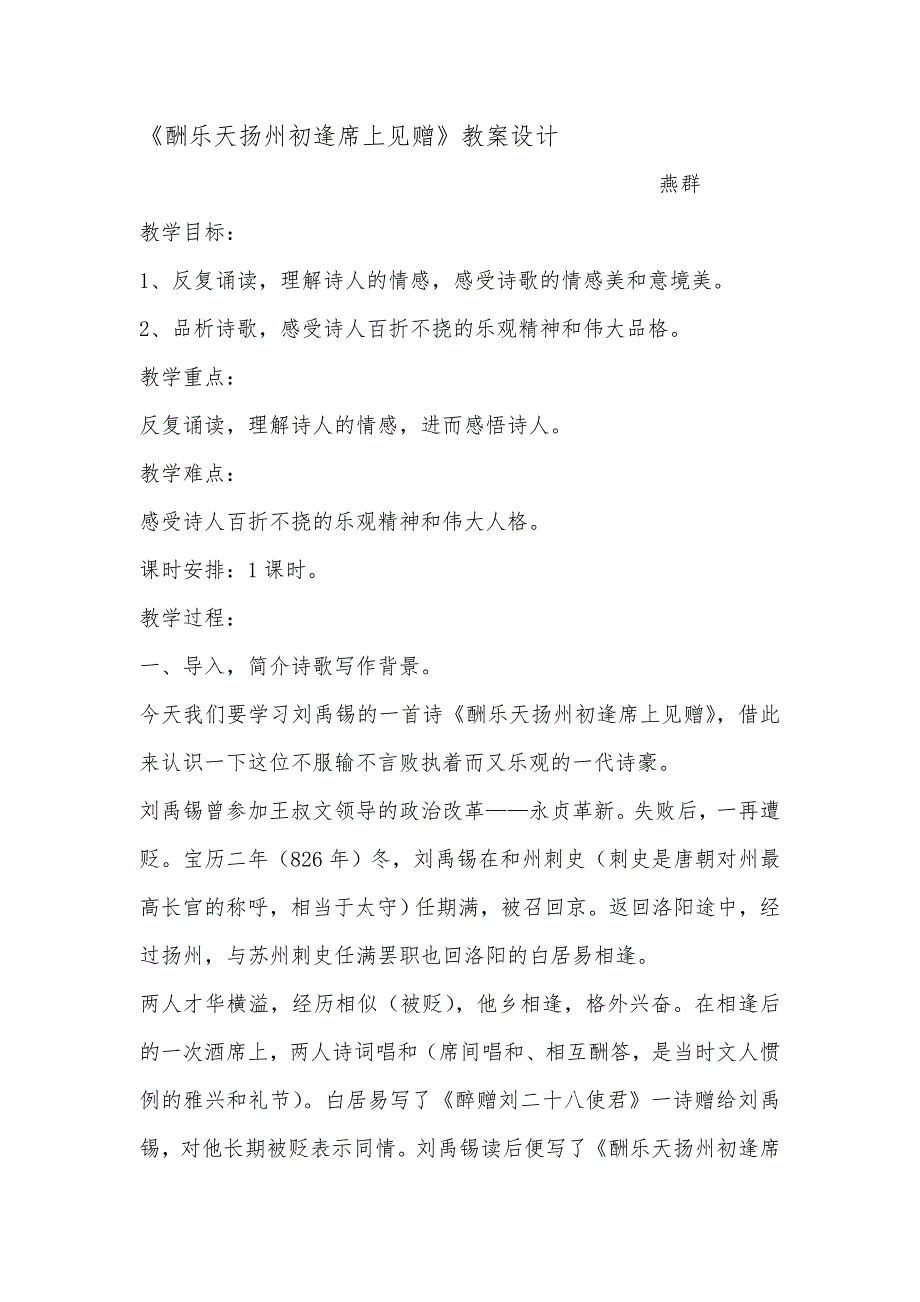 《酬乐天扬州初逢席上见赠》教案设计
燕群
教学目标：
1、反复诵读，理解诗人的情感，感受诗歌的情感美和意境美。
2、品析诗歌，感受诗人百折不挠的乐观精神和伟大品格。
教学重点：
反复诵读，理解诗人的情感，进而感悟诗人。
教学难点：
感受诗人百折不挠的乐观精神和伟大人格。
课时安排：1课时。
教学过程：
一、导入，简介诗歌写作背景。
今天我们要学习刘禹锡的一首诗《酬乐天扬州初逢席上见赠》，借此
来认识一下这位不服输不言败执着而又乐观的一代诗豪。
刘禹锡曾参加王叔文领导的政治改革——永贞革新。失败后，一再遭
贬。宝历二年（826年）冬，刘禹锡在和州刺史（刺史是唐朝对州最
高长官的称呼，相当于太守）任期满，被召回京。返回洛阳途中，经
过扬州，与苏州刺史任满罢职也回洛阳的白居易相逢。
两人才华横溢，经历相似（被贬），他乡相逢，格外兴奋。在相逢后
的一次酒席上，两人诗词唱和（席间唱和、相互酬答，是当时文人惯
例的雅兴和礼节）。白居易写了《醉赠刘二十八使君》一诗赠给刘禹
锡，对他长期被贬表示同情。刘禹锡读后便写了《酬乐天扬州初逢席